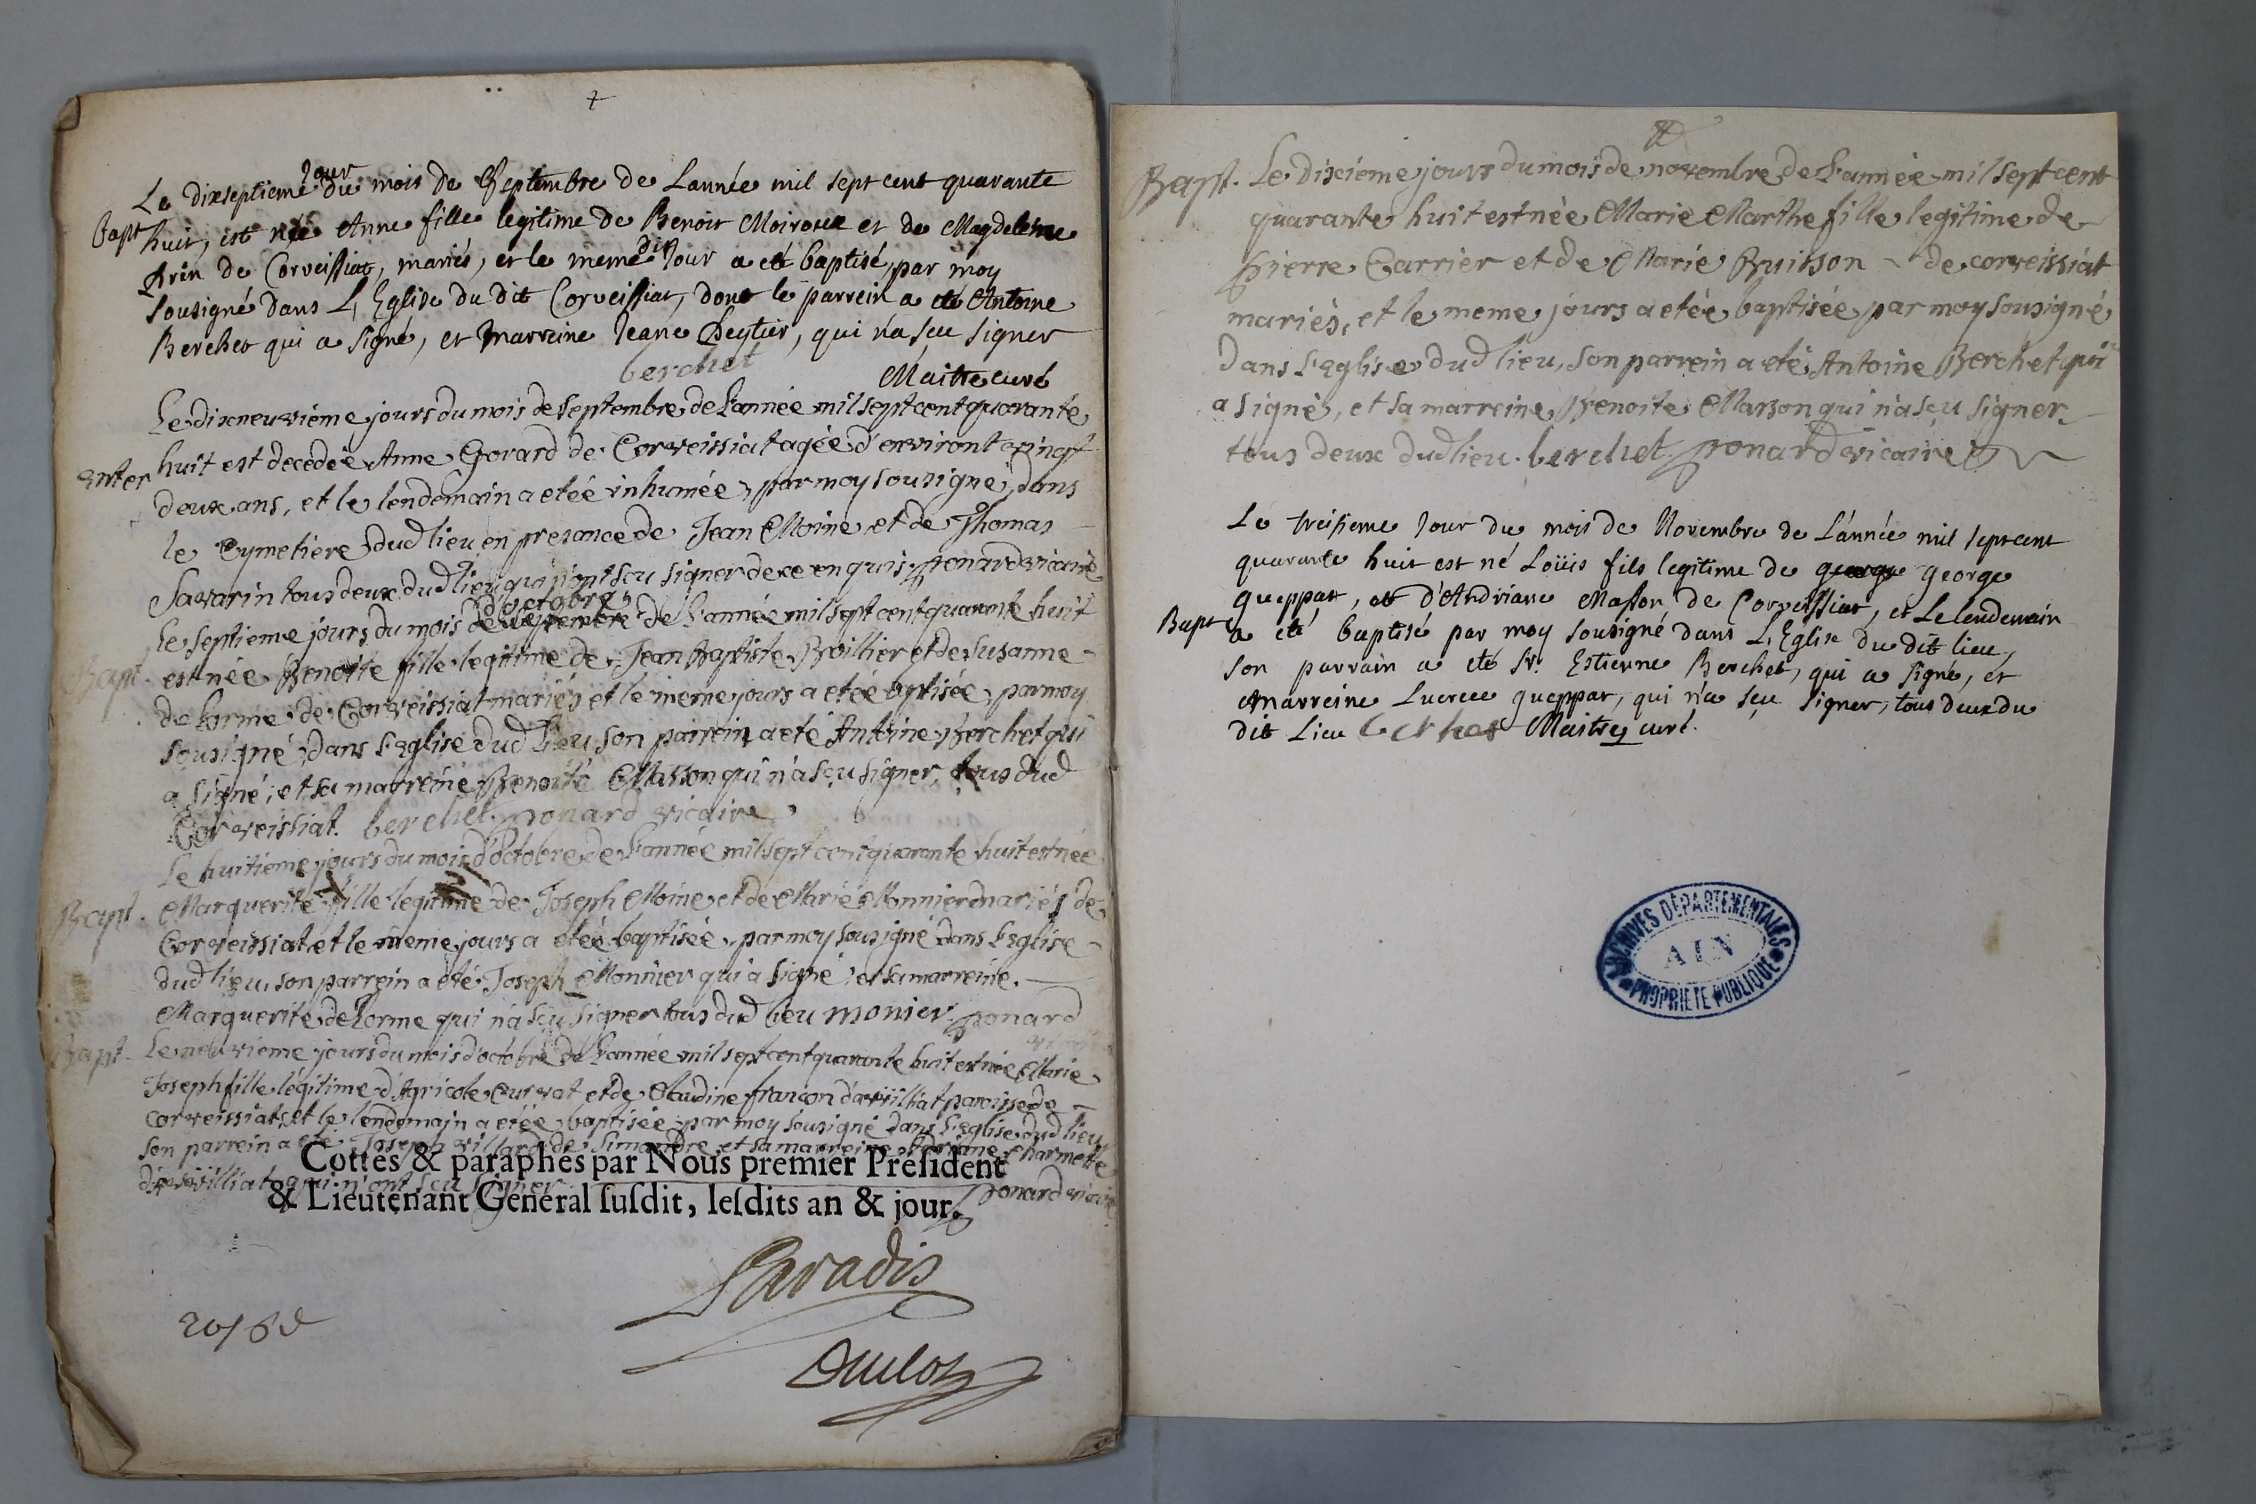 Le dixseptieme jour du mois de Septembre de Lannée mil sept cent quarante
Bapt huit, est née Anne fille legitime de Benoit Moiroux et de Magdeleine
de Corveissiat, mariés, et le meme dit jour a eté baptisé, par moy
sousigné dans L'Eglise du dit Corveissiat, dont le parrein a eté Antoine
Berchet qui a signé, et marreine Jeane qui n'a sçu signer
berchet
Maitre curé
Le dixneuvieme jours du mois de septembre de l'année mil sept cent quarante
enter huit est decedée Anne Govard de Corveissiat agée d'environt
deux ans, et le lendemain a etée inhumée par moy sousigné dans
le Cymetiere dud lieu en presance de Jean Moine et de Thomas
Savarin tous deux dud lieu qui n'ont sçu signer de ce enquis ponard vicaire
le septieme jours du mois d'octobre de l'année mil sept cent quarante huit
Bapt. est née Benoite fille legitime de Jean Baptiste Boillier et de Susanne
de Lorme de Corveissiat mariés et le meme jours a etée baptisée par moy
sousigné dans l'eglise dud lieu son parrein a eté Antoine Berchet qui
a signé, et sa marreine Benoite Marson qui n'a sçu signer, tous dud
Corveissiat. berchet. ponard vicaire
Le huitieme jours du mois d'octobre de l'année mil sept cent quarante huit est née
Bapt. Marguerite fille legitime de Joseph Moine et de Marie Monnier mariés de
Corveissiat et le meme jours a etée baptisée par moy sousigné dans l'Eglise
dud lieu, son parrein a eté Joseph Monnier qui a signé et sa marreine
Marguerite de Lorme qui n'a sçu signer tous dud lieu monier ponard
vicaire
Bapt. Le neuvieme jours du mois d'octobre de l'année mil sept cent quarante huit est née Marie
Joseph fille légitime d'Agricole Curvat et de Claudine françon d'arvilliat paroisse de
corveissiat, et le lendemain a etée baptisée par moy sousigné dans l'Eglise dud lieu
son parrein a eté Joseph villard de Simandre et sa marreine Adriane Charmette
qui n'ont sçu signer ponard vicaire
Cottés & paraphés par Nous premier Président
& Lieutenant Général susdit, lesdits an & jour.
Paradis
Duclos
Bapt. Le dixcieme jours du mois de novembre de l'année mil sept cent
quarante huit est née Marie Marthe fille legitime de
pierre Carrier et de Marie Buisson de corveissiat
mariés, et le meme jours a etée baptisée par moy sousigné
Dans l'eglise dud lieu, son parrein a eté Antoine Berchet qui
a signé, et sa marreine Benoite Marson qui n'a sçu signer
tous deux dud lieu. berchet. ponard vicaire
Le treisieme jour du mois de Novembre de L'année mil sept cent
quarante huit est né Loüis fils legitime de george george
gueppat, et d'Andriane Masson de Corveissiat, et Le lendemain
Bapt a eté baptisé par moy sousigné dans L'Eglise du dit lieu,
son parrain a eté Sr. Estienne Berchet, qui a signé, et
Marreine Lucrece gueppat, qui n'a sçu signer, tous deux du
dit Lieu berchet Maitre curé.
ARCHIVES DÉPARTEMENTALES
AIN
PROPRIETE PUBLIQUE